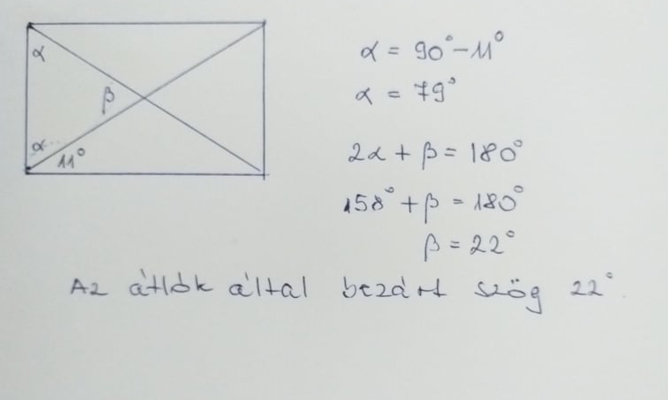 α
β
α
11°
α = 90° - 11°
α = 79°
2α + β = 180°
158° + β = 180°
β = 22°
Az átlók által bezárt szög 22°.